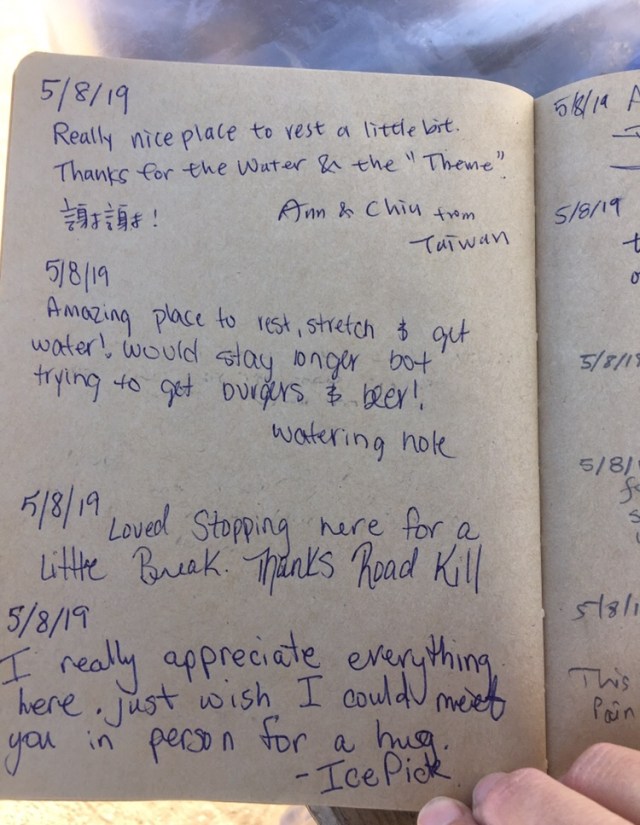 5/8/19
Really nice place to rest a little bit.
Thanks for the Water & the "Theme".
謝謝!
Ann & Chiu from
Taiwan
5/8/19
Amazing place to rest, stretch & get
water! would stay longer but
trying to get burgers & beer!
watering hole
5/8/19 Loved Stopping here for a
Little Break. Thanks Road Kill
5/8/19
I really appreciate everything
here. just wish I could meet
you in person for a hug.
- Ice Pick
5/8/19 A
5/8/19
t
5/8/19
5/8/
5/8/1
This
Pain